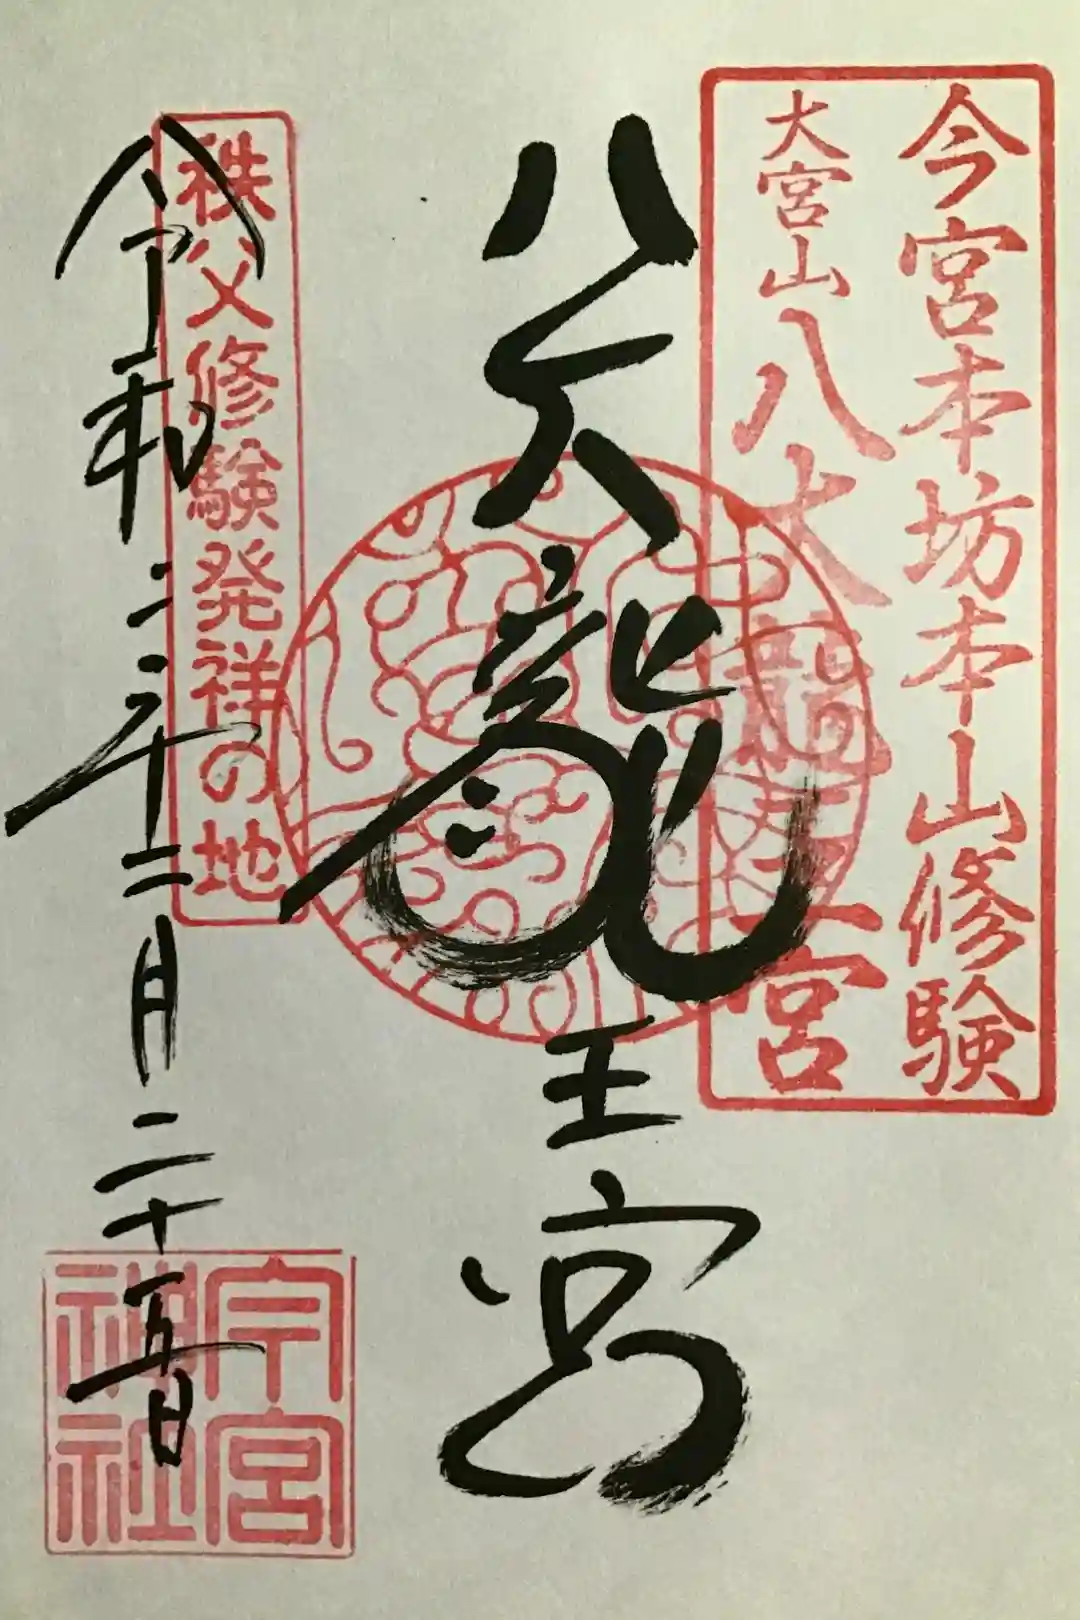 今宮本坊本山修験
大宮山八大龍王宮
八大龍王宮
秩父修験発祥の地
令和二年二月二十五日
今宮神社